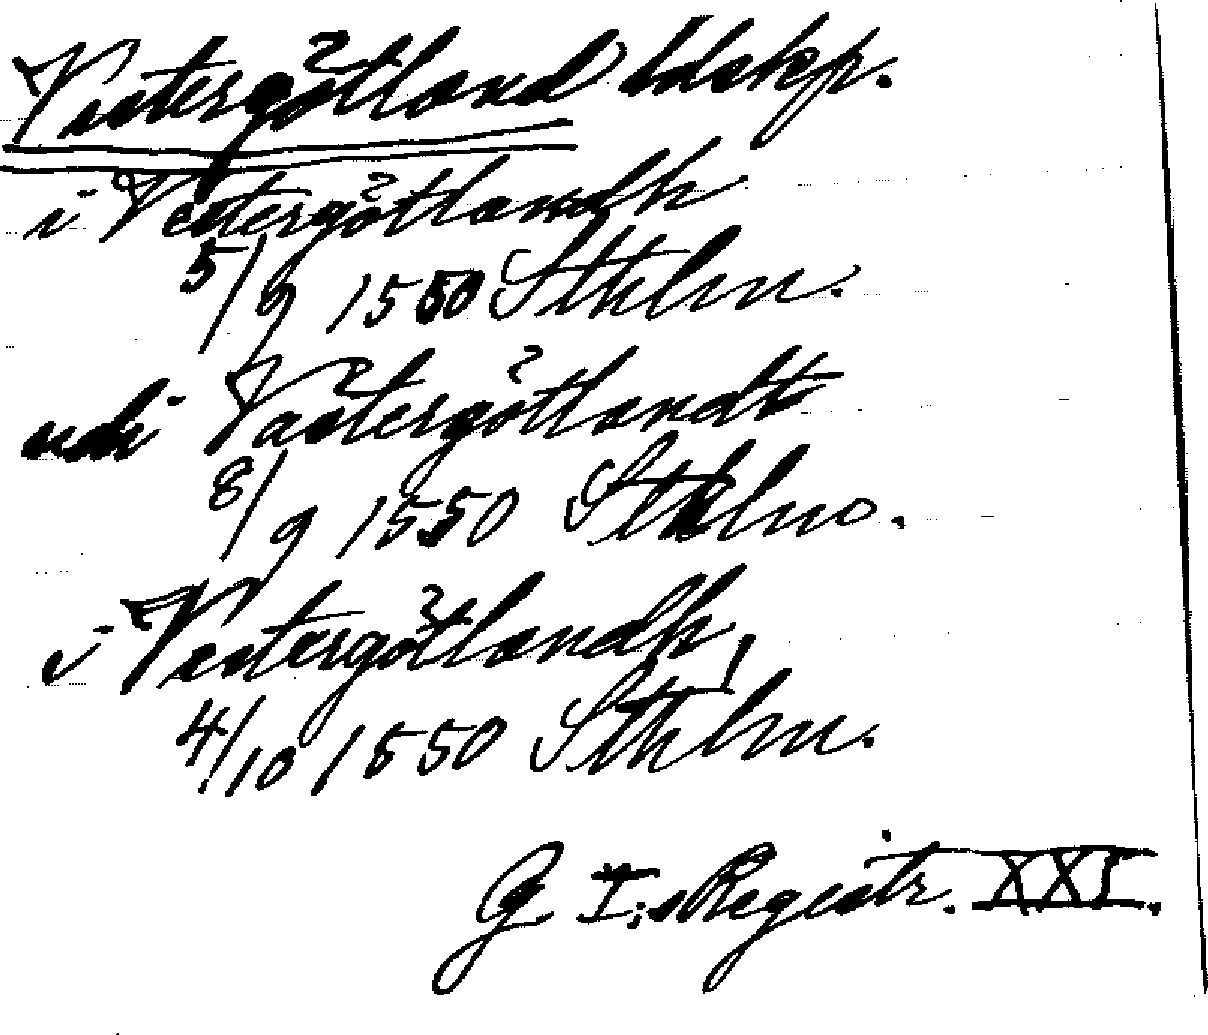 Västergötland ldskp.
i Vestergötlandh
5/9 1550 Sthlm.
udi Vastergötlandt
8/9 1550 Sthlm.
i Vestergötlandh,
4/10 1550 Sthlm.
G I:s Registr. XXI.